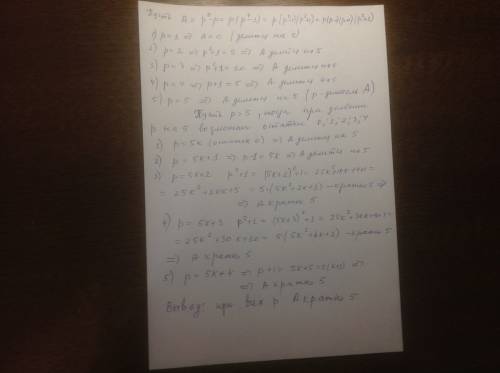 Пусть A = p⁵-p = p(p⁴-1) = p(p²-1)(p²+1) = p(p-1)(p+1)(p²+1)
1) p=1 ⇒ A=0 (делится на 5)
2) p=2 ⇒ p²+1=5 ⇒ A делится на 5
3) p=3 ⇒ p²+1=10 ⇒ A делится на 5
4) p=4 ⇒ p+1=5 ⇒ A делится на 5
5) p=5 ⇒ A делится на 5 (p-делитель A)
Пусть p>5, тогда при делении
p на 5 возможны остатки 0; 1; 2; 3; 4
1) p=5k (остаток 0) ⇒ A делится на 5
2) p=5k+1 ⇒ p-1=5k ⇒ A делится на 5
3) p=5k+2 p²+1=(5k+2)²+1= 25k²+20k+4+1=
= 25k²+20k+5 = 5(5k²+4k+1) - кратно 5 ⇒
⇒ A кратно 5
4) p=5k+3 p²+1=(5k+3)²+1=25k²+30k+9+1=
=25k²+30k+10=5(5k²+6k+2) - кратно 5
⇒ A кратно 5
5) p=5k+4 ⇒ p+1=5k+5=5(k+1) ⇒
⇒ A кратно 5
Вывод: при всех p A кратно 5